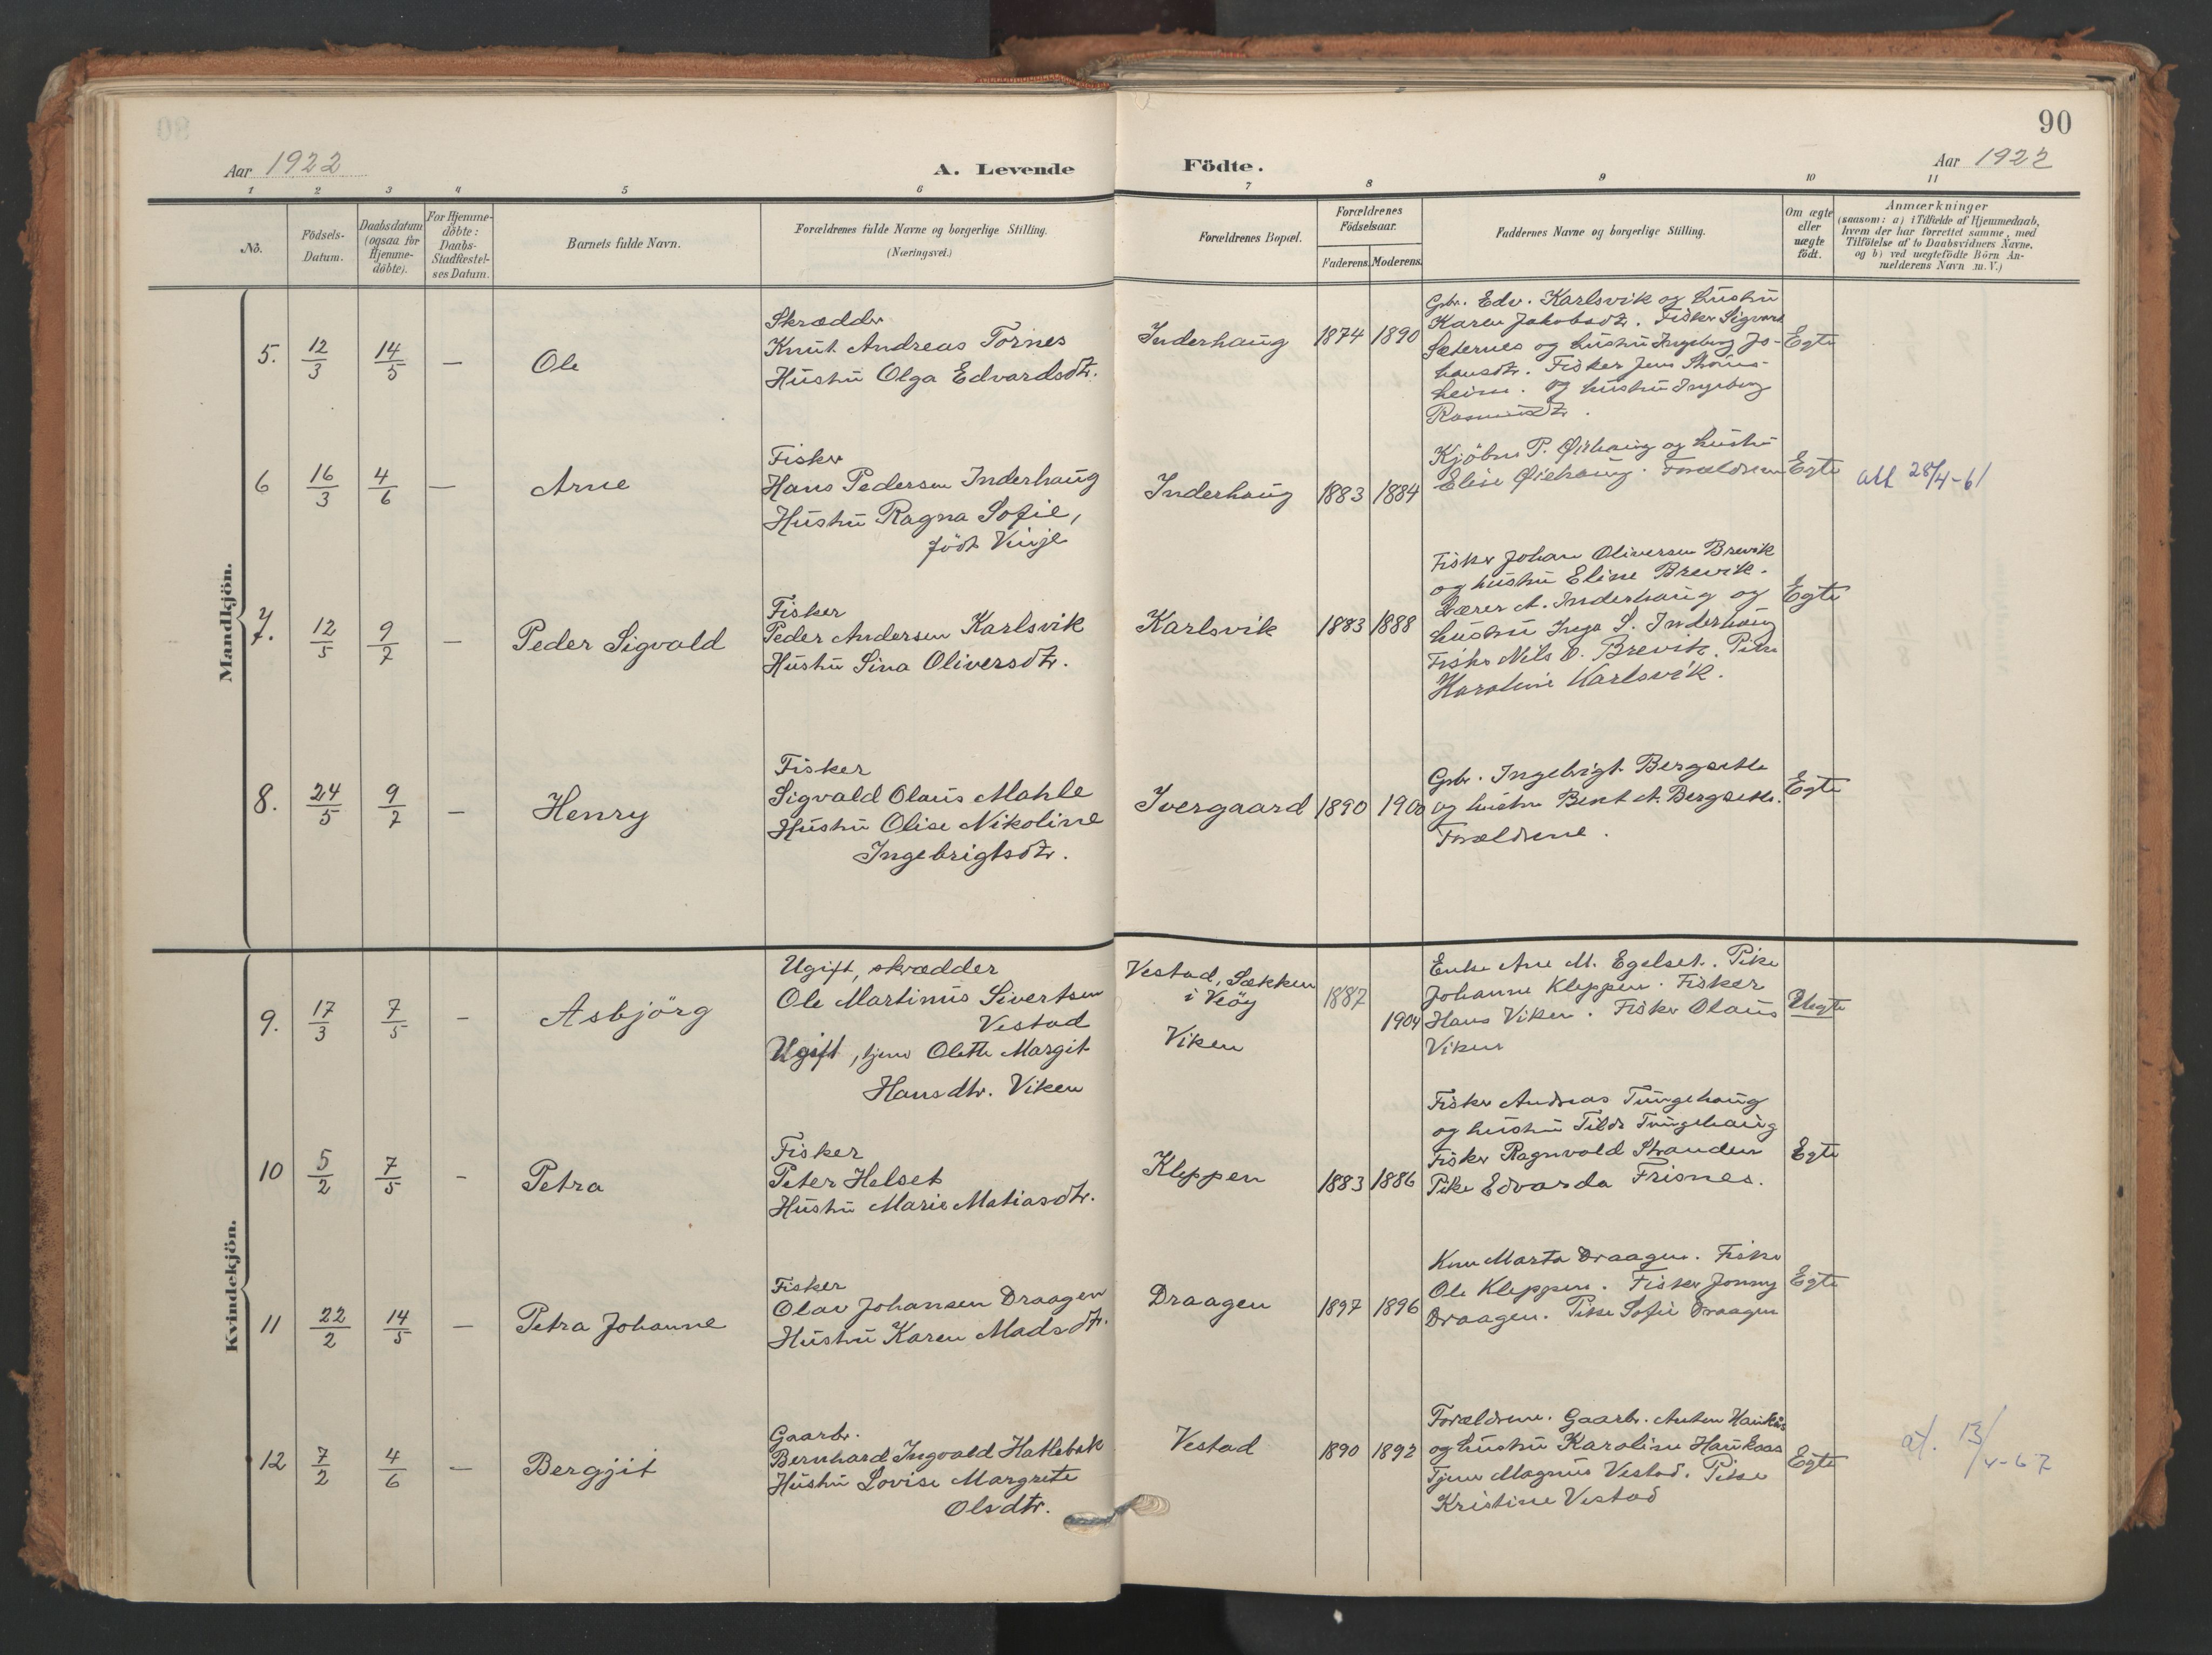 90
Aar 1922
A. Levende
Födte.
Aar 1922
1 2 3 4 5 6 7 8 9 10 11
No.
Födsels-
Datum.
Daabsdatum
(ogsaa for
Hjemme-
döbte).
For Hjemme-
döbte:
Daabs-
Stadfæstel-
ses Datum.
Barnets fulde Navn.
Forældrenes fulde Navne og borgerlige Stilling.
(Næringsvei.)
Forældrenes Bopæl.
Forældrenes
Födselsaar.
Faderens. Moderens.
Faddernes Navne og borgerlige Stilling.
Om ægte
eller
uægte
födt.
Anmærkninger
(saasom: a) i Tilfælde af Hjemmedaab,
hvem der har forrettet samme, med
Tilföielse af to Daabsvidners Navne,
og b) ved uægtefödte Börn An-
melderens Navn m.V.)
Mandkjön.
5. 12/3 14/5 — Ole
Skrædder
Knut Andreas Tornes
Hustru Olga Edvardsdtr.
Inderhaug 1874 1890
Gbr. Edv. Karlsvik og hustru
Karen Jakobsdtr. Fisker Sigvart
Sæternes og hustru Ingeborg Jo-
hansdtr. Fisker Jens Strøms-
heim. og hustru Ingeborg
Rasmusdtr.
Egte
6 16/3 4/6 — Arne
Fisker
Hans Pedersen Inderhaug
Hustru Ragna Sofie,
födt Vinje
Inderhaug 1883 1884
Kjöbm P. Øiehaug og hustru
Elise Øiehaug. Forældrene
Egte
att 28/4-61
7. 12/5 9/7 — Peder Sigvald
Fisker
Peder Andersen Karlsvik
Hustru Sina Oliversdtr.
Karlsvik 1883 1888
Fisker Johan Oliversen Brevik
og hustru Eline Brevik.
Lærer A. Inderhaug og
hustru Inga S. Inderhaug
Fisker Nils O. Brevik. Pike
Karoline Karlsvik.
Egte
8. 24/5 9/7 — Henry
Fisker
Sigvald Olaus Mahle
Hustru Olise Nikoline
Ingebrigtsdtr.
Ivergaard 1890 1900
Gbr. Ingebrigt Bergsetle
og hustru Berit A. Bergsetle.
Forældrene.
Egte
Kvindekjön.
9. 17/3 7/5 - Asbjörg
Ugift, skrædder
Ole Martinus Sivertsen
Vestad
Ugift, tjener Olette Margit
Hansdtr. Viken
Vestad, Sækken
i Veöy
Viken
1887
1904
Enke Ane M. Egelset. Pike
Johanne Kleppen. Fisker
Hans Viken. Fisker Olaus
Viken
Uegte
10 5/2 7/5 - Petra
Fisker
Peter Helset
Hustru Marie Matiasdtr.
Kleppen 1883 1886
Fisker Andreas Tungehaug
og hustru Tilda Tungehaug
Fisker Ragnvald Stranden
Pike Edvarda Frisnes.
Egte
11 22/2 14/5 — Petra Johanne
Fisker
Olav Johansen Draagen
Hustru Karen Madsdtr.
Draagen 1897 1896
Kone Marta Draagen. Fisker
Ole Kleppen. Fisker Jonny
Draagen. Pike Sofie Draagen
Egte
12 7/2 4/6 — Bergjit
Gaarbr.
Bernhard Ingvald Hatlebak
Hustru Lovise Margrete
Olsdtr.
Vestad 1890 1892
Forældrene. Gaarbr. Anton Haukaas
og hustru Karoline Haukaas
Tjener Magnus Vestad. Pike
Kristine Vestad
Egte
at. 13/4-67